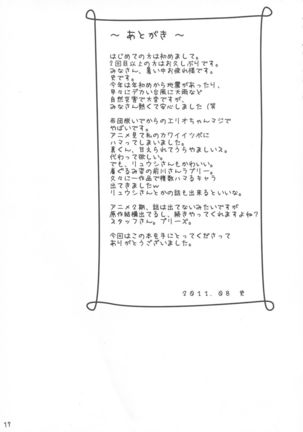 ～ あとがき ～
はじめての方は初めまして。
2回目以上の方はお久しぶりです。
みなさん、暑い中お疲れ様です。
史です。
今年は年初めから地震があったり、
早々にデカい台風に大雨など
自然災害で大変ですが、
みなさん熱くて安心しました(笑
布団咲いてからのエリオちゃんマジで
やばいです。
アニメ見て私のカワイイツボに
ハマってしまいました。
真くん、甘えられてうらやましいス。
代わって欲しい。
でも、リュウシさんもかわいい。
着ぐるみ姿の前川さんラブリー。
久々に一作品で複数ハマるキャラ
出てきましたw
リュウシさんとかの話も出来るといいな。
アニメ2期、話は出てないみたいですが
原作結構出てるし、続きやってくれますよね?
スタッフさん。プリーズ。
今回はこの本を手にとってくださって
ありがとうございました。
2011.08 史
17